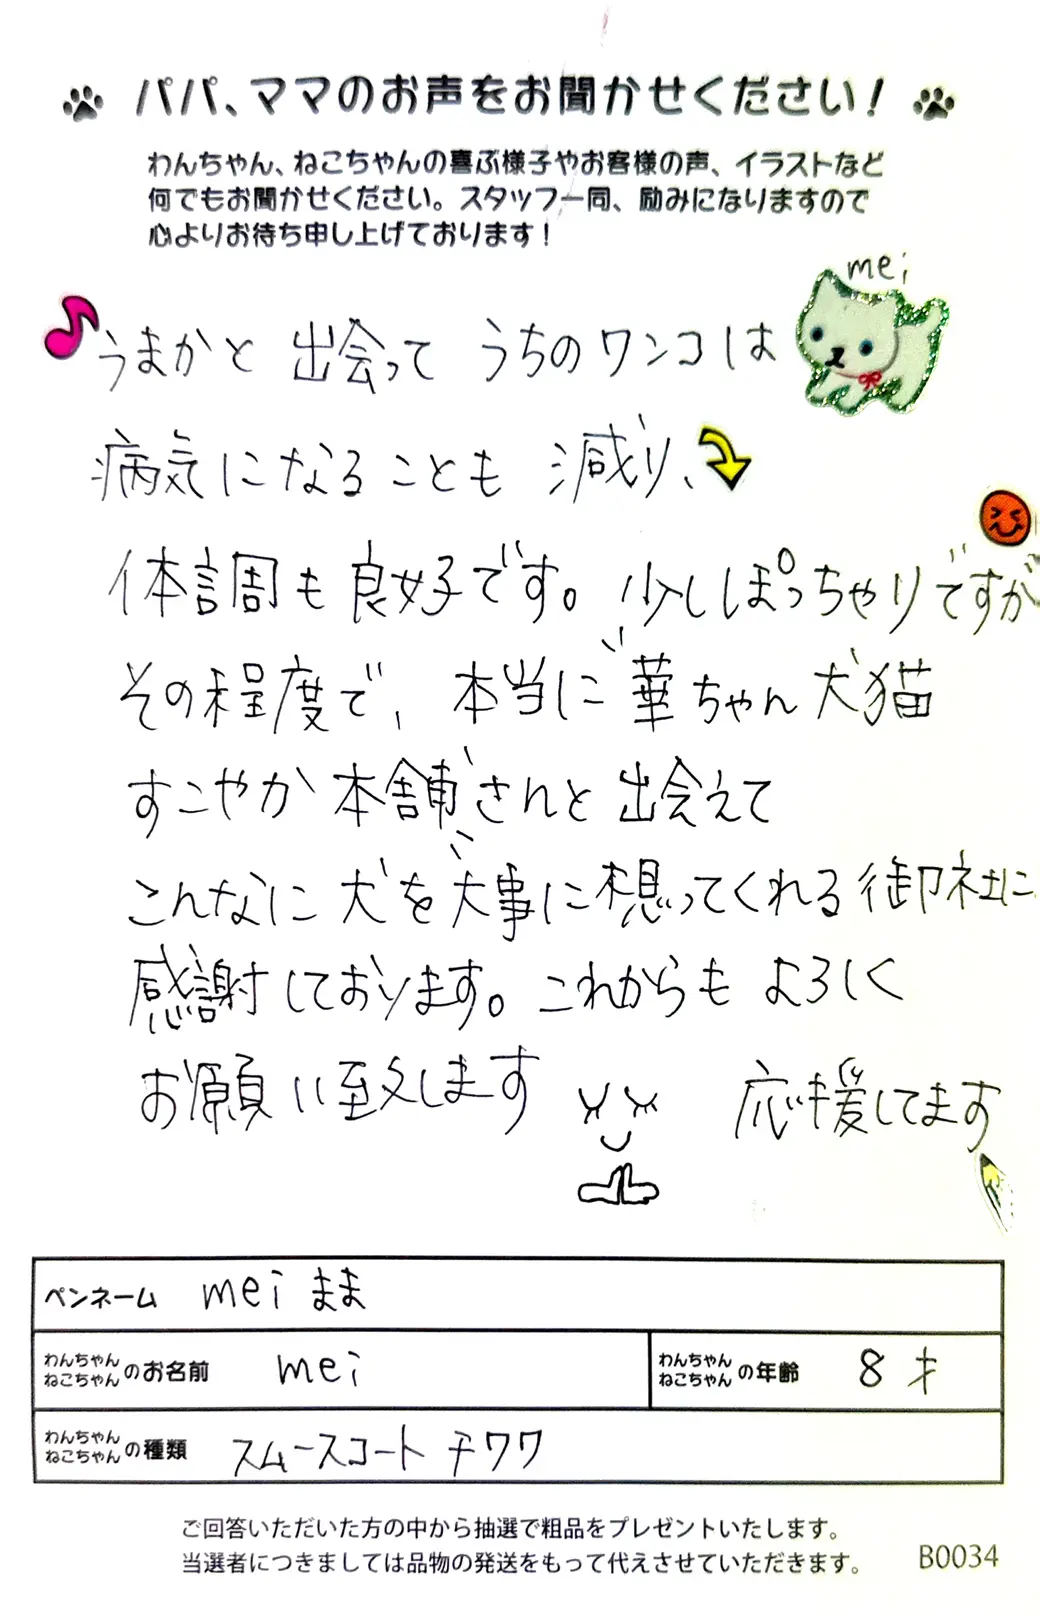 パパ、ママのお声をお聞かせください!
わんちゃん、ねこちゃんの喜ぶ様子やお客様の声、イラストなど
何でもお聞かせください。スタッフ一同、励みになりますので
心よりお待ち申し上げております!
mei
うまかと 出会って うちのワンコは
病気になることも 減り、
体調も良好です。少しぽっちゃりですが
その程度で、本当に華ちゃん犬猫
すこやか本舗さんと出会えて
こんなに犬を大事に想ってくれる御社に
感謝しております。これからもよろしく
お願い致します 応援してます
ペンネーム mei まま
わんちゃん ねこちゃん のお名前 mei わんちゃん ねこちゃん の年齢 8才
わんちゃん ねこちゃん の種類 スムースコート チワワ
ご回答いただいた方の中から抽選で粗品をプレゼントいたします。
当選者につきましては品物の発送をもって代えさせていただきます。 B0034